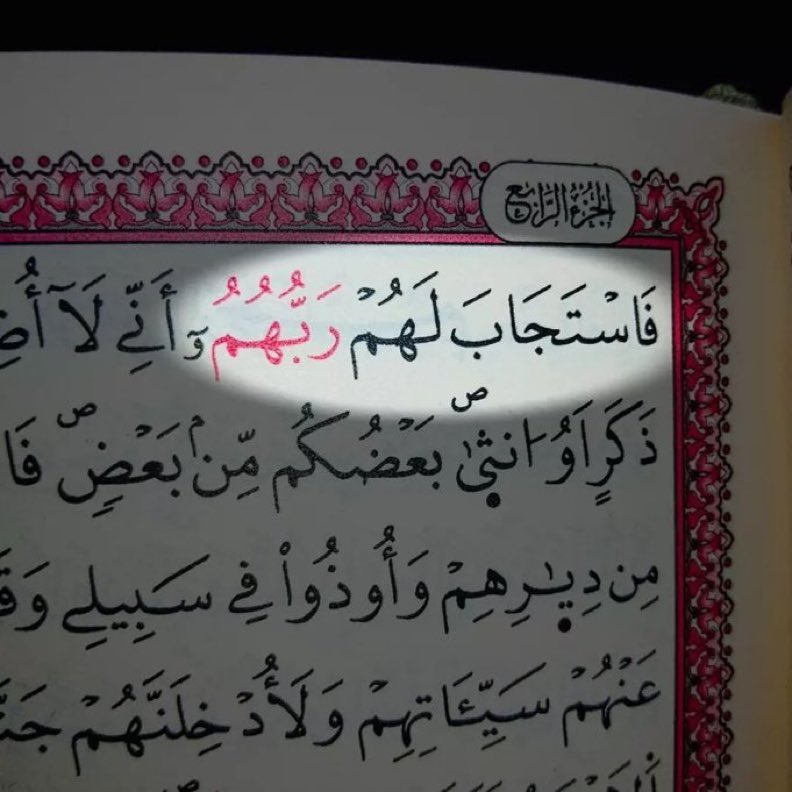 الجزء الرابع
فَاسْتَجَابَ لَهُمْ رَبُّهُمُۥٓ أَنِّے لَآ أُضِ
ذَكَرٍ اَوُ ا۟نث۪ىٰۖ بَعْضُكُم مِّنۢ بَعْضٖۖ فَا
مِن دِيٰ۪رِهِمْ وَأُوذُواْ فِے سَبِيلِے وَقَ
عَنْهُمْ سَيِّـَٔاتِهِمْ وَلَأُدْخِلَنَّهُمْ جَنَّ